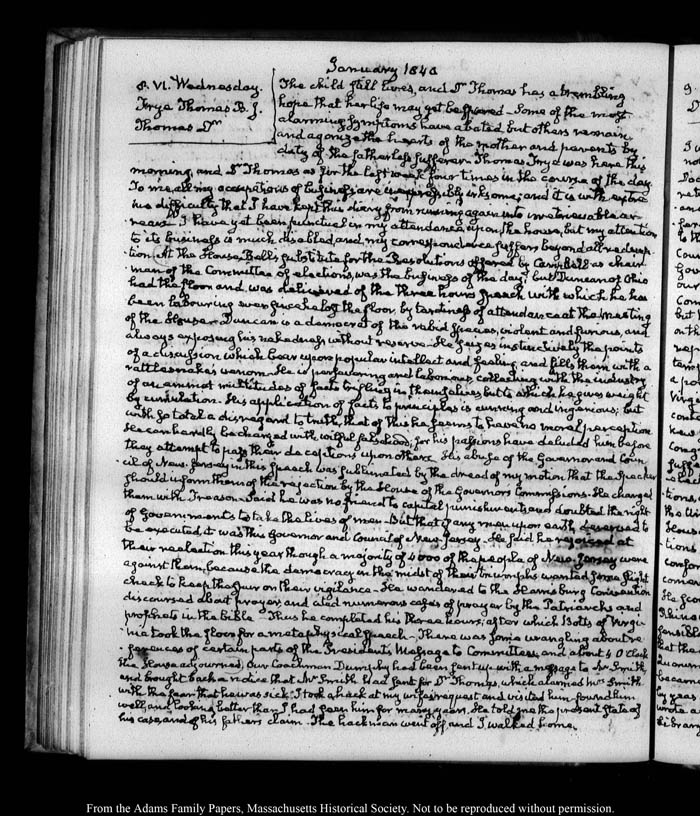 January 1840
8. VI. Wednesday.
Frye Thomas B. J.
Thomas Dr
The child still lives, and Dr Thomas has a trembling
hope that her life may yet be spared. Some of the most
alarming symptoms have abated but others remain
and agonize the hearts of the mother and parents by
duty of the fatherless sufferer. Thomas Frye was here this
morning, and Dr Thomas as for the last week four times in the course of the day.
To me, all my occupations of business are inexpressibly irksome, and it is with extre
me difficulty that I have kept this diary from running again into irretrievable ar
rears. I have yet been punctual in my attendance upon the house, but my attention
to its business is much disabled, and my correspondence suffers beyond all redemp
tion. At the House, Bell's substitute for the Resolutions offered by Campbell as chair
man of the Committee of elections, was the business of the day; but Duncan of Ohio
had the floor and was delivered of the three hours speech with which he has
been labouring ever since he lost the floor by tardiness of attendance at the meeting
of the House. Duncan is a democrat of the rabid species, violent and furious, and
always exposing his nakedness without reserve. He seizes instinctively the points
of a discussion which bear upon popular intellect and feeling, and fills them with a
rattlesnake's venom. He is persevering and laborious, collecting with the industry
of an emmet multitudes of facts trifling in themselves but to which he gives weight
by cumulation. His application of facts to principles is cunning and ingenious; but
with so total a disregard to truth, that of this he seems to have no moral perception.
He can hardly be charged with wilful falsehood, for his passions have deluded him before
they attempt to pass their deceptions upon others. His abuse of the Governor and Coun
cil of New-Jersey in this speech was sublimated by the dread of my motion that the Speaker
should inform them of the rejection by the House of the Governors Commissions. He charged
them with Treason. Said he was no friend to capital punishments and doubted the right
of Governments to take the lives of men. But that if any men upon earth deserved to
be executed, it was this Governor and Council of New-Jersey. He said he rejoiced at
their reelection this year though a majority of 4000 of the people of New Jersey were
against them, because the democracy in the midst of their triumphs wanted some slight
check to keep them on their vigilance. He wandered to the Harrisburg Convention
discoursed about prayer, and cited numerous cases of prayer by the Patriarchs and
prophets in the bible. Thus he completed his three hours; after which Botts of Virgi
nia took the floor for a metaphysical speech. There was some wrangling about re
ferences of certain parts of the President's Message to Committees, and about 4 O'Clock
the House adjourned. Our Coachman Dumphy had been sent up with a message to Mr Smith,
and brought back a notice that Mr Smith had sent for Dr Thomas, which alarmed Mrs Smith
with the fear that he was sick. I took a hack at my wife's request and visited him, found him
well and looking better than I had seen him for many years. He told me the present state of
his case, and of his fathers claim. The hackman went off, and I walked home.
From the Adams Family Papers, Massachusetts Historical Society. Not to be reproduced without permission.